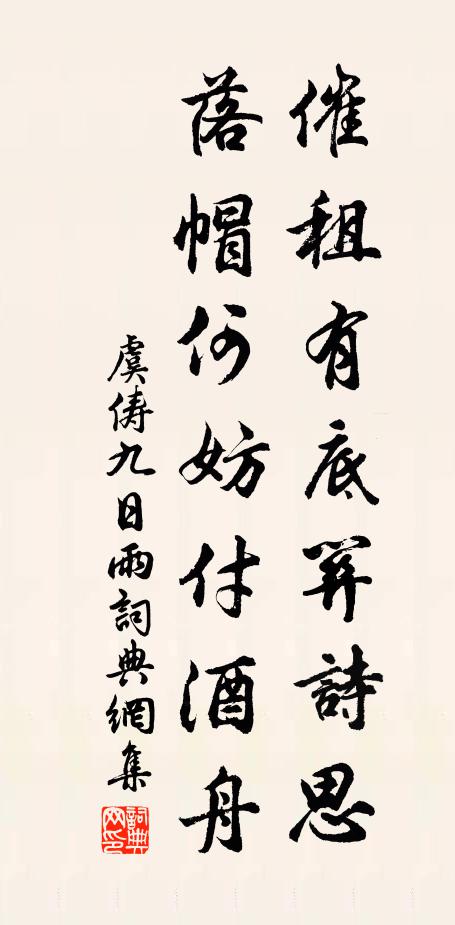 催租有底關詩思
落帽何妨付酒舟
虞儔九日雨詞典網集
詞典網印